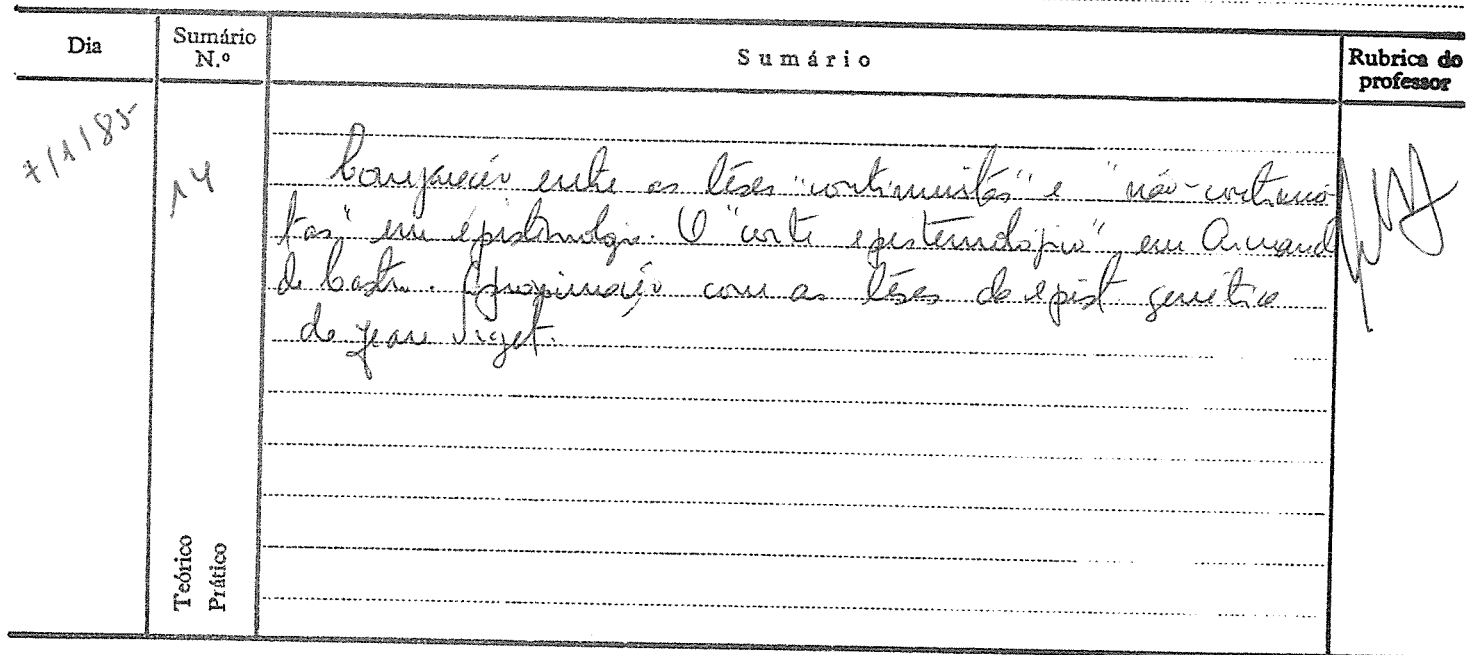 Dia
Sumário N.º
Sumário
Rubrica do professor
7/1/85
14
Comparação entre as teses "continuistas" e "não-continuis-
tas" em epistemologia. O "corte epistemológico" em Armando
de Castro. Aproximação com as teses da epist genética
de Jean Piaget.
Teórico
Prático